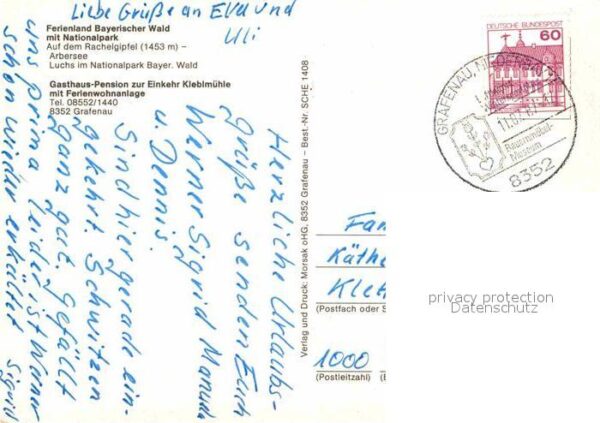 Liebe Grüße an Eva und
Uli
Ferienland Bayerischer Wald
mit Nationalpark
Auf dem Rachelgipfel (1453 m) –
Arbersee
Luchs im Nationalpark Bayer. Wald
Gasthaus-Pension zur Einkehr Kleblmühle
mit Ferienwohnanlage
Tel. 08552/1440
8352 Grafenau
Herzliche Urlaubs-
grüße senden Euch
Werner Sigrid Manuela
u. Dennis.
Sind hier gerade ein-
gekehrt Schwitzen
ganz gut. Gefällt
uns prima leider ist Werner
schon wieder erkältet
Sigrid
Verlag und Druck: Morsak oHG, 8352 Grafenau – Best.-Nr. SCHE 1408
DEUTSCHE BUNDESPOST
60
GRAFENAU, NIEDERBAY
Bauernmöbel-
Museum
8352
Fam
Käthe
Klet
(Postfach oder S
1000
(Postleitzahl)
privacy protection
Datenschutz